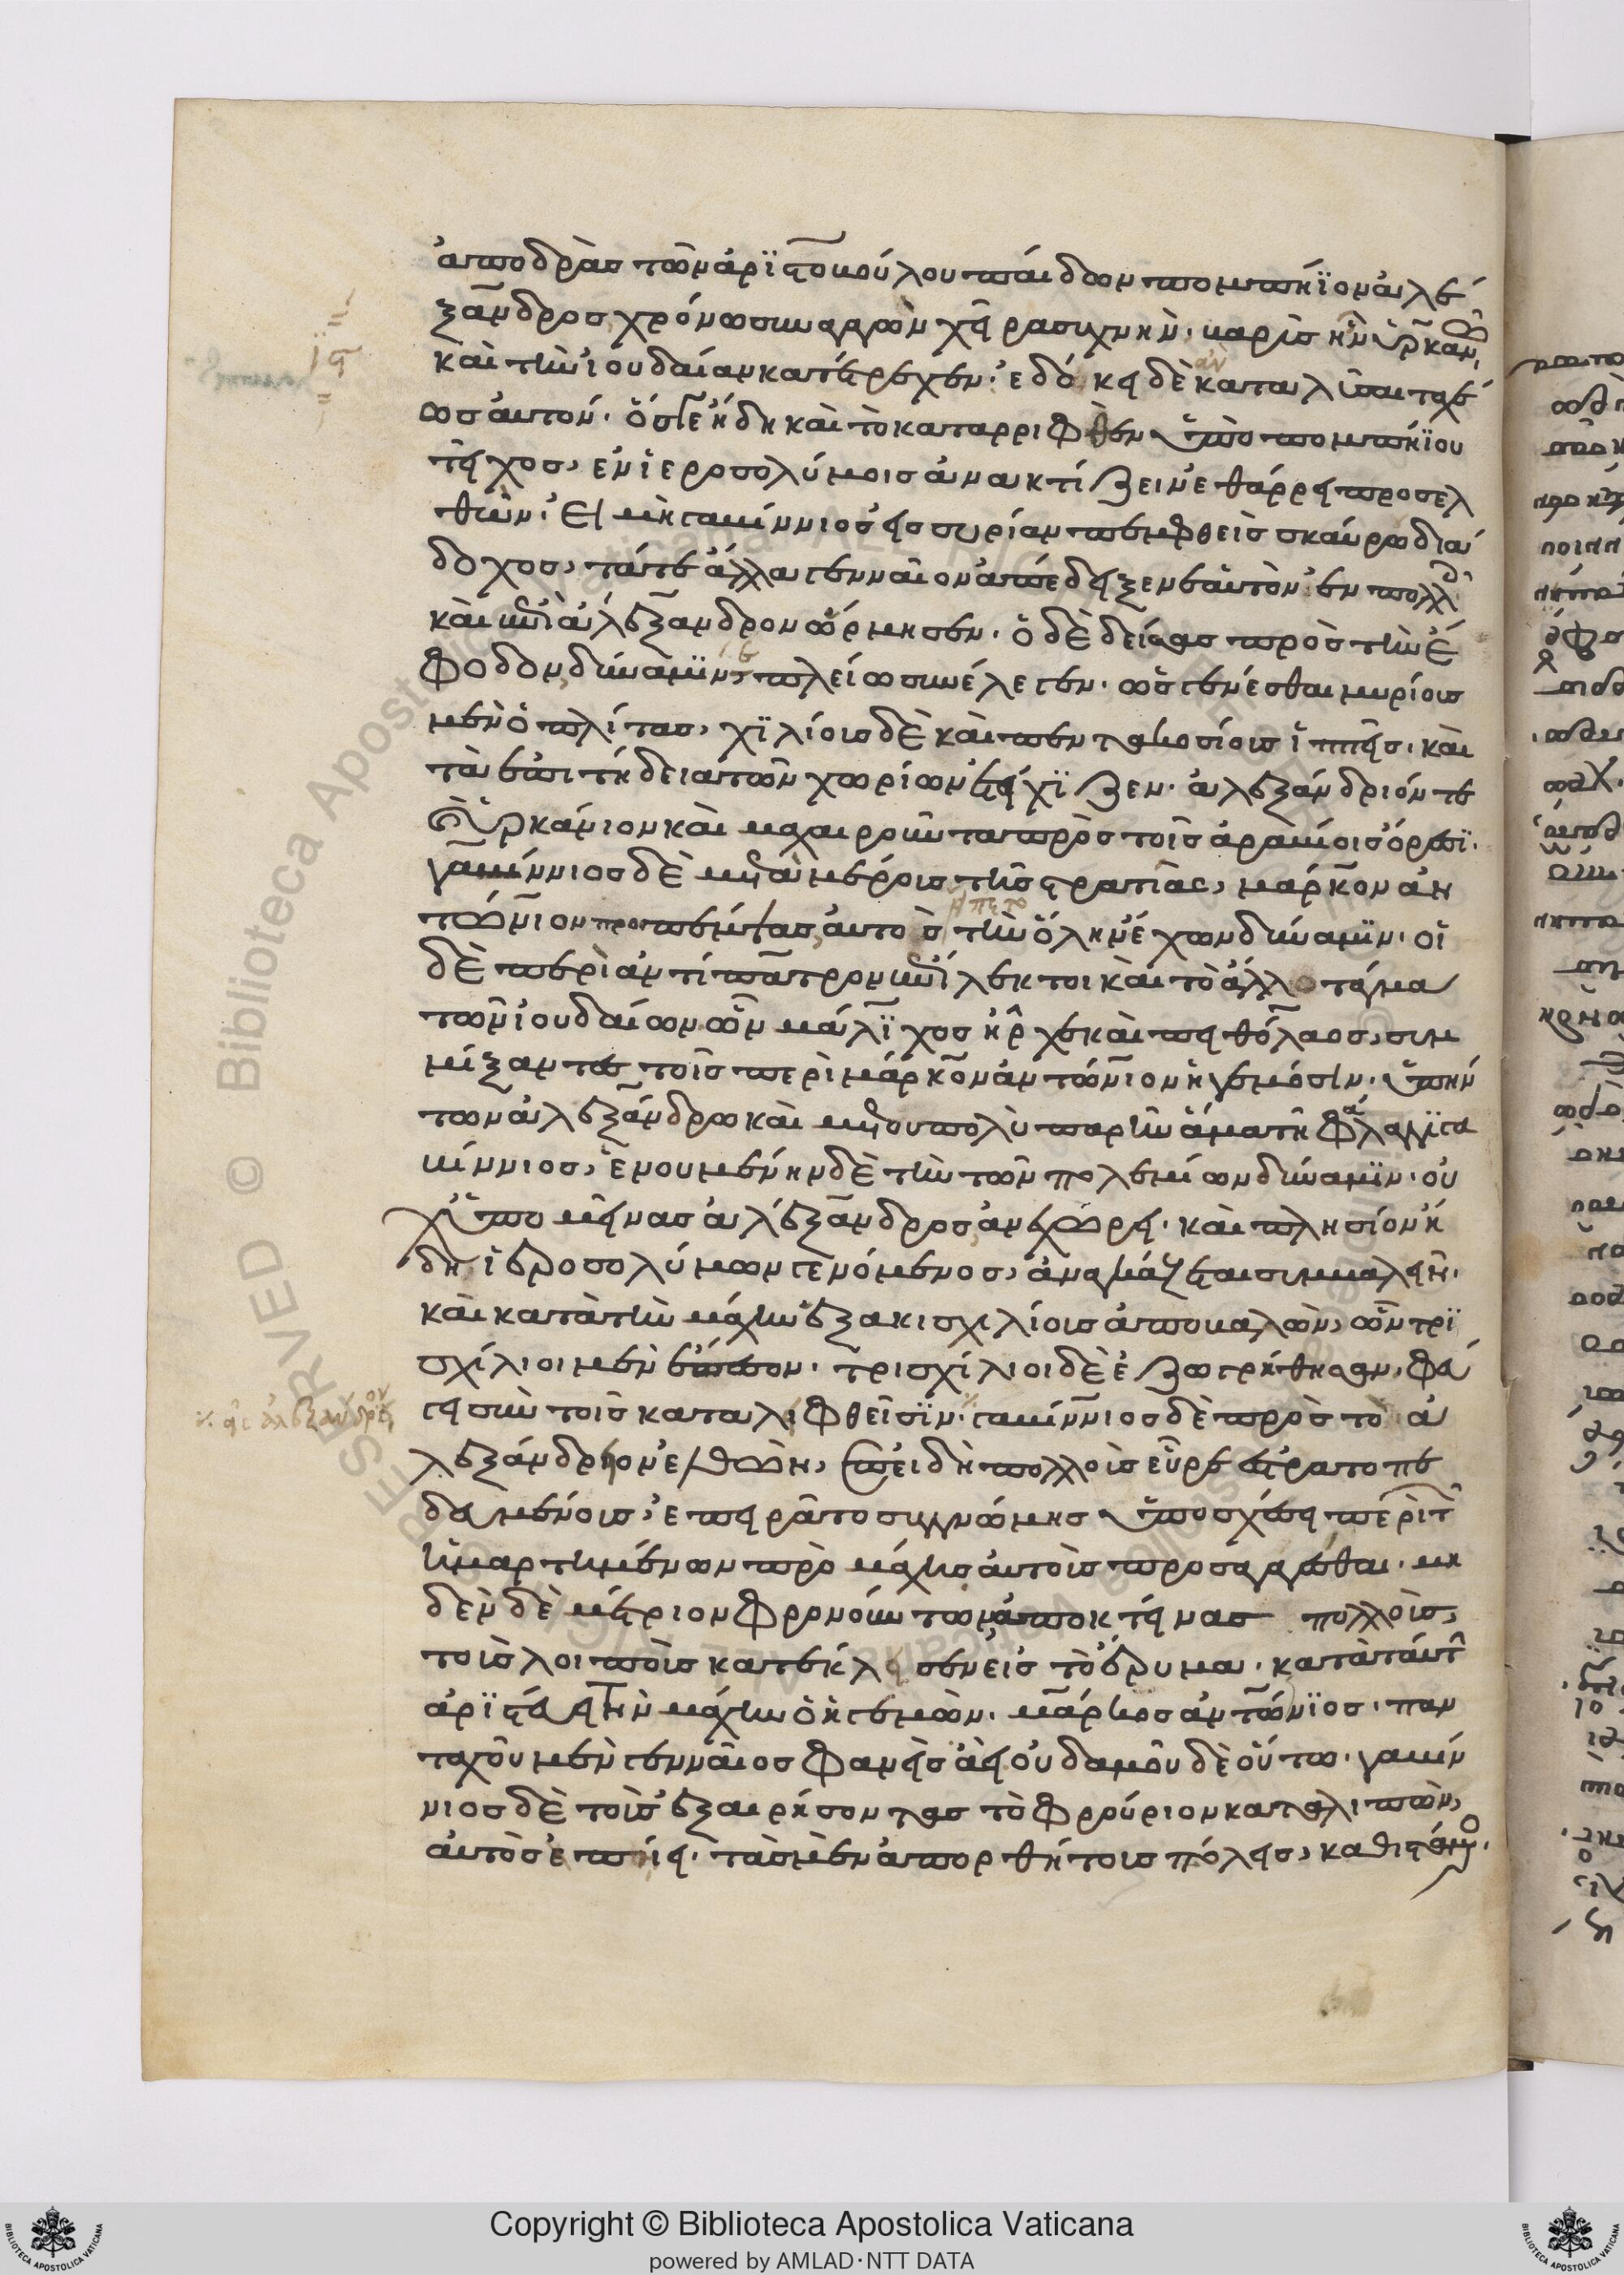 ἀποδρὰς τῶν ἀριστοβούλου παίδων πομπήϊον ἀλέ
ξανδρος χρόνω συναγαγὼν χεῖρα συχνὴν. βαρὺς ἦν ὑρκανῶ
καὶ τὴν ἰουδαίαν κατέτρεχεν. ἐδόκει δὲ καταλῦσαι ταχέ
ως αὐτόν. ὅς γε ἤδη καὶ τὸ καταρριφθὲν ὑπὸ πομπηΐου
τεῖχος, ἐν ἱεροσολύμοις ἀνακτίζειν ἐθάρρει προσελ
θών. εἰ μὴ γαβίννιος εἰς συρίαν πεμφθεὶς σκαύρω διά
δοχος, τά τε ἄλλα γενναῖον ἀπέδειξεν ἑαυτὸν ἐν πολλοῖς
καὶ ἐπὶ ἀλέξανδρον ὥρμησεν. ὁ δὲ δείσας πρὸς τὴν ἔ
φοδον, δύναμίν τε πλείω συνέλεγεν. ὡς γενέσθαι μυρίους
μὲν ὁπλίτας, χιλίους δὲ καὶ πεντακοσίους ἱππεῖς. καὶ
τὰ ἐπιτήδεια τῶν χωρίων ἐτείχιζεν. ἀλεξάνδριόν τε
καὶ ὑρκάνιον καὶ μαχαιροῦντα πρὸς τοῖς ἀραβίοις ὄρεσι.
γαβίννιος δὲ μετὰ μέρους τῆς στρατιᾶς, μάρκον ἀν
τώνιον προπέμψας, αὐτὸς εἵπετο τὴν ὅλην ἔχων δύναμιν. οἱ
δὲ περὶ ἀντίπατρον ἐπίλεκτοι καὶ τὸ ἄλλο τάγμα
τῶν ἰουδαίων ὧν μάλιχος ἦρχε καὶ πειθόλαος, συμ
μίξαντες τοῖς περὶ μάρκον ἀντώνιον ἡγεμόσιν. ὑπήν
των ἀλεξάνδρω καὶ μετ' οὐ πολὺ παρῆν ἅμα τῆ φάλαγγι γα
βίννιος, ἑνουμένην δὲ τὴν τῶν πολεμίων δύναμιν. οὐ
χ' ὑπομείνας ἀλέξανδρος, ἀνεχώρει. καὶ πλησίον ἤ
δη ἱεροσολύμων γενόμενος, ἀναγκάζεται συμβαλεῖν.
καὶ κατὰ τὴν μάχην ἑξακισχιλίους ἀποβαλὼν, ὧν τρι
σχίλιοι μὲν ἔπεσον. τρισχίλιοι δὲ ἐζωγρήθησαν, φεύ
γει σὺν τοῖς καταλειφθεῖσιν. γαβίννιος δὲ πρὸς τὸ ἀ
λεξάνδρειον ἐλθὼν, ἐπειδὴ πολλοὺς εὗρε στρατοπε
δευμένους, ἐπειρᾶτο συγγνώμης ὑποσχέσει περὶ τῶν
ἡμαρτημένων πρὸ μάχης αὐτοὺς προσαγαγέσθαι. μη
δὲν δὲ μέτριον φρονούντων, ἀποκτείνας πολλοὺς,
τοὺς λοιποὺς κατέκλεισεν εἰς τὸ ἔρυμα. κατὰ ταύτην
ἀριστεύει τὴν μάχην ὁ ἡγεμὼν. μάρκος ἀντώνιος. παν
ταχοῦ μὲν γενναῖος φανεὶς ἀεὶ οὐδαμοῦ δὲ οὕτω. γαβίν
νιος δὲ τοὺς ἐξαιρήσοντας τὸ φρούριον καταλιπὼν,
αὐτὸς ἐπήει. τὰς μὲν ἀπορθήτους πόλεις, καθιστάμενος.